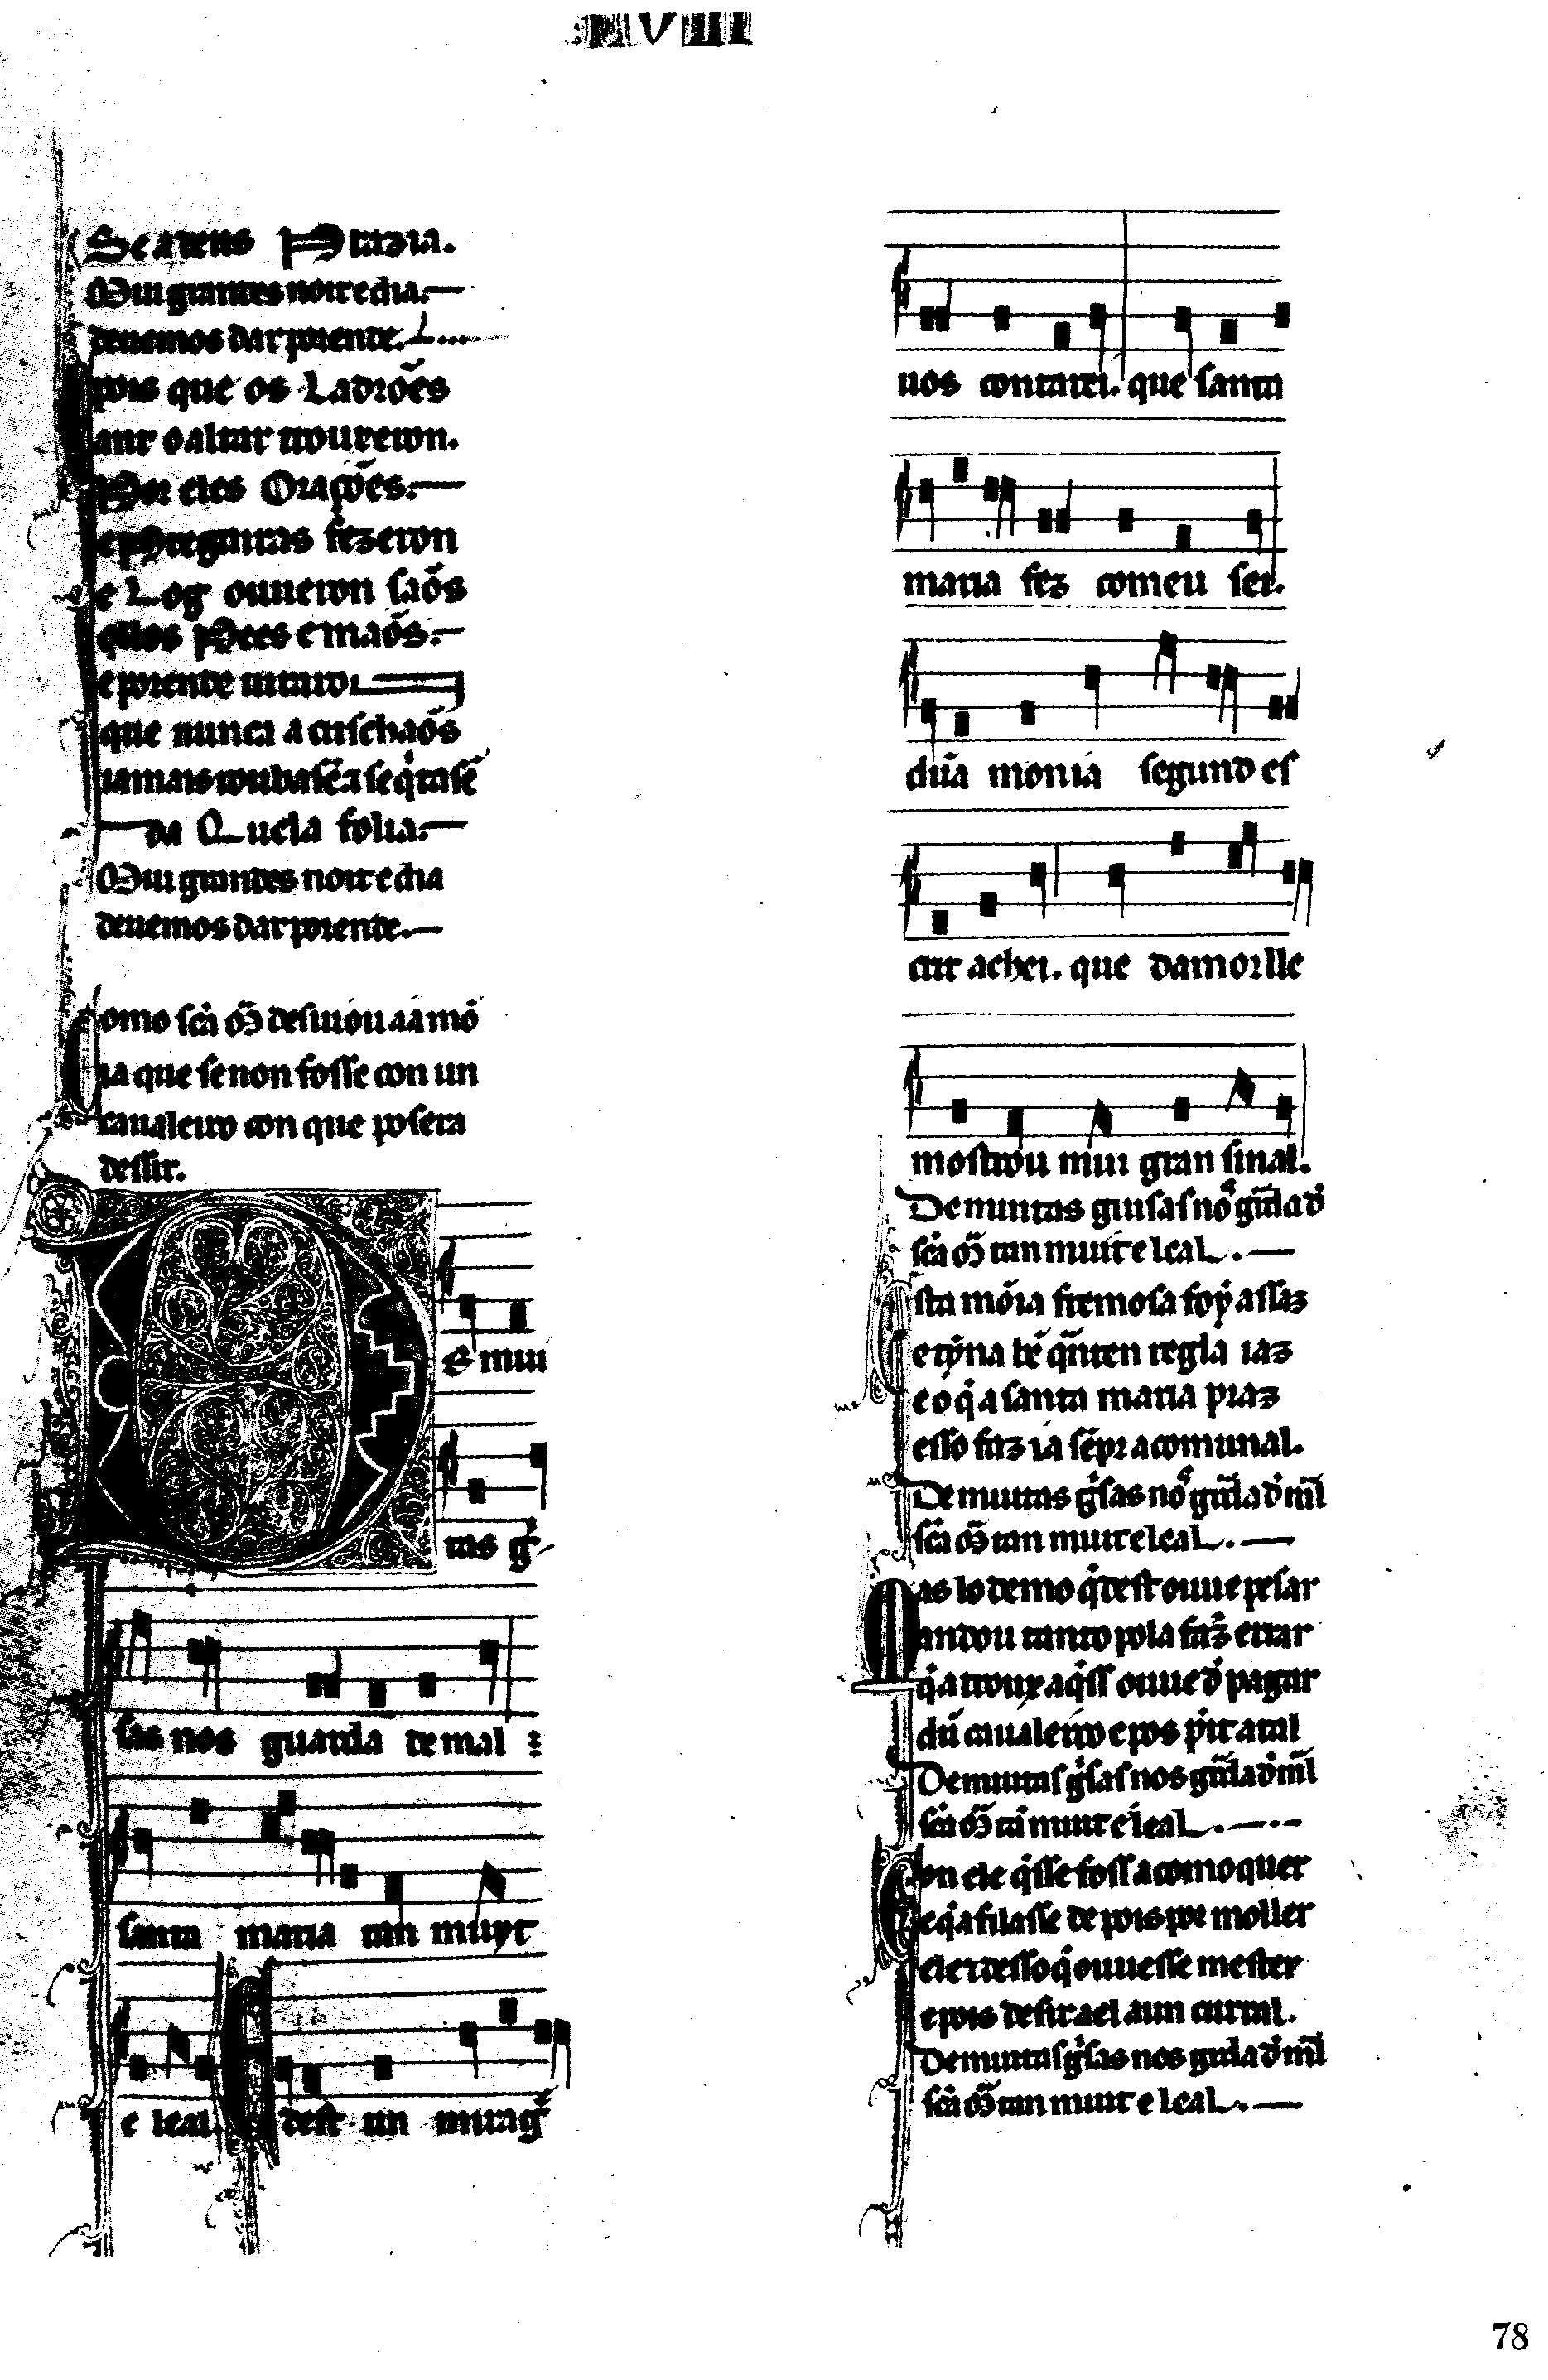 LVIII
Se a Deus prazia.
Mui grandes noit e dia.
deuemos dar porende.
pois que os ladrões
ant o altar trouxeron.
Por eles orações.
e pregarias fezeron
e log ouueron sãos
ollos pees e mãos.
e porende iuraron
que nunca a crischãos
iamais roubassẽ ⁊ se q̇tassẽ
da quela folia.
Mui grandes noit e dia
deuemos dar porende.
Como scȧ Mȃ desuiou aa mȯ
ia que se non fosse con un
caualeiro con que posera
dessir.
DE mui
tas gı̇
sas nos guarda de mal
santa maria tan muyt
e leal. E dest un mirag̃
uos contarei. que santa
maria fez comeu sei.
dũa monia segund es
crit achei. que damor lle
mostrou mui gran sinal.
De muitas guisas nos gũla dͦ
scȧ Mȃ tan muit e leal.
Esta mȯia fremosa foy assaz
e tı̇na bẽ q̃nten regla iaz
e o q̇ a santa maria praz
esso fazia sẽpr acomunal.
De muitas gı̇sas nos gũla dͦ ml̃
scȧ Mȃ tan muit e leal.
Mas lo demo q̇ dest ouue pesar
andou tanto pola fazͤ errar
q̇ a troux a q̇ss ouue dͤ pagar
dũ caualeiro e pos pı̇t atal
De muitas gı̇sas nos gũla dͦ ml̃
scȧ Mȃ tã muit e leal.
Con ele q̇sse foss a como quer
e q̇ a fillasse depois por moller
e lle desso q̇ ouuesse mester
e pos de sir a el a un curral.
De muitas gı̇sas nos gũla dͦ ml̃
scȧ Mȃ tan muit e leal.
78